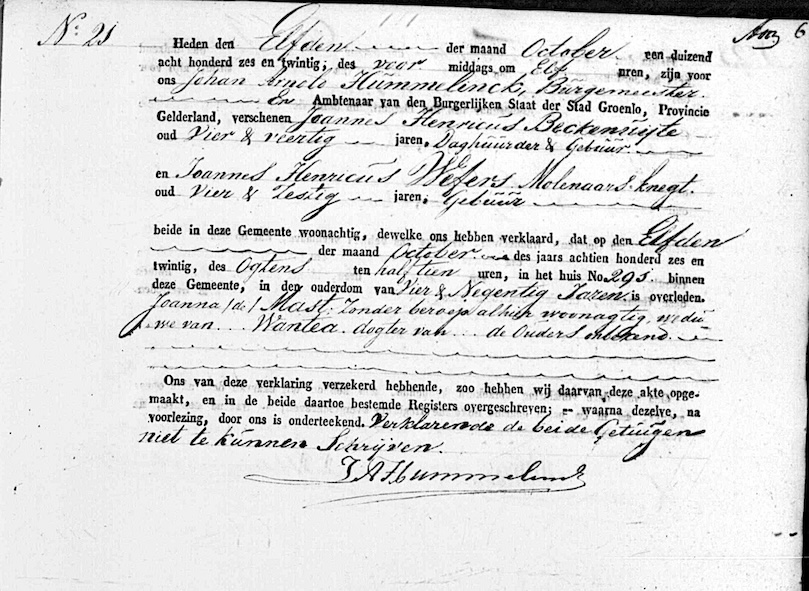 No. 21
6
Heden den Elfden der maand October een duizend
acht honderd zes en twintig, des voor middags om Elf uren, zijn voor
ons Johan Arnold Hummelinck, Burgemeester.
En Ambtenaar van den Burgerlijken Staat der Stad Groenlo, Provincie
Gelderland, verschenen Joannes Henricus
oud Vier & veertig jaren, Daghuurder & Gebuur
en Joannes Henricus Wefers Molenaars-knegt.
oud Vier & Zestig jaren, Gebuur
beide in deze Gemeente woonachtig, dewelke ons hebben verklaard, dat op den Elfden
der maand October des jaars achtien honderd zes en
twintig, des Ogtens ten half tien uren, in het huis No. 295 binnen
deze Gemeente, in den ouderdom van Vier & Negentig Jaren is overleden.
Joanna (de) Mast: Zonder beroep alhier woonagtig, wedu
we van Wantea dogter van de Ouders onbekend
Ons van deze verklaring verzekerd hebbende, zoo hebben wij daarvan deze akte opge-
maakt, en in de beide daartoe bestemde Registers overgeschreven; — waarna dezelve, na
voorlezing, door ons is onderteekend. Verklarende de beide Getuigen
niet te kunnen Schrijven.
J A Hummelinck